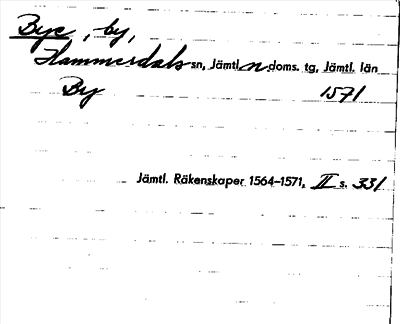 Bye, by,
Hammerdals sn, Jämtl. n. doms. tg, Jämtl. län
By 1571
Jämtl. Räkenskaper 1564-1571, II s. 331